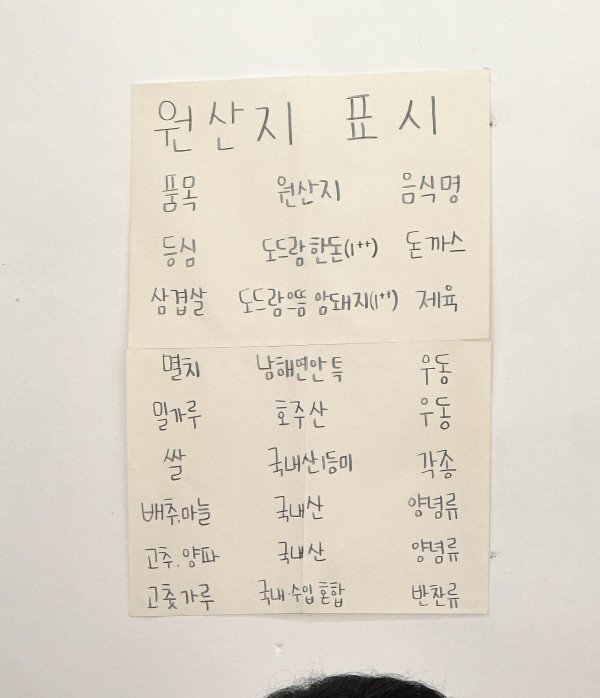 원산지 표시
품목 원산지 음식명
등심 도드람한돈(1++) 돈까스
삼겹살 도드람으뜸 암돼지(1++) 제육
멸치 남해연안 특 우동
밀가루 호주산 우동
쌀 국내산1등미 각종
배추.마늘 국내산 양념류
고추.양파 국내산 양념류
고춧가루 국내.수입 혼합 반찬류